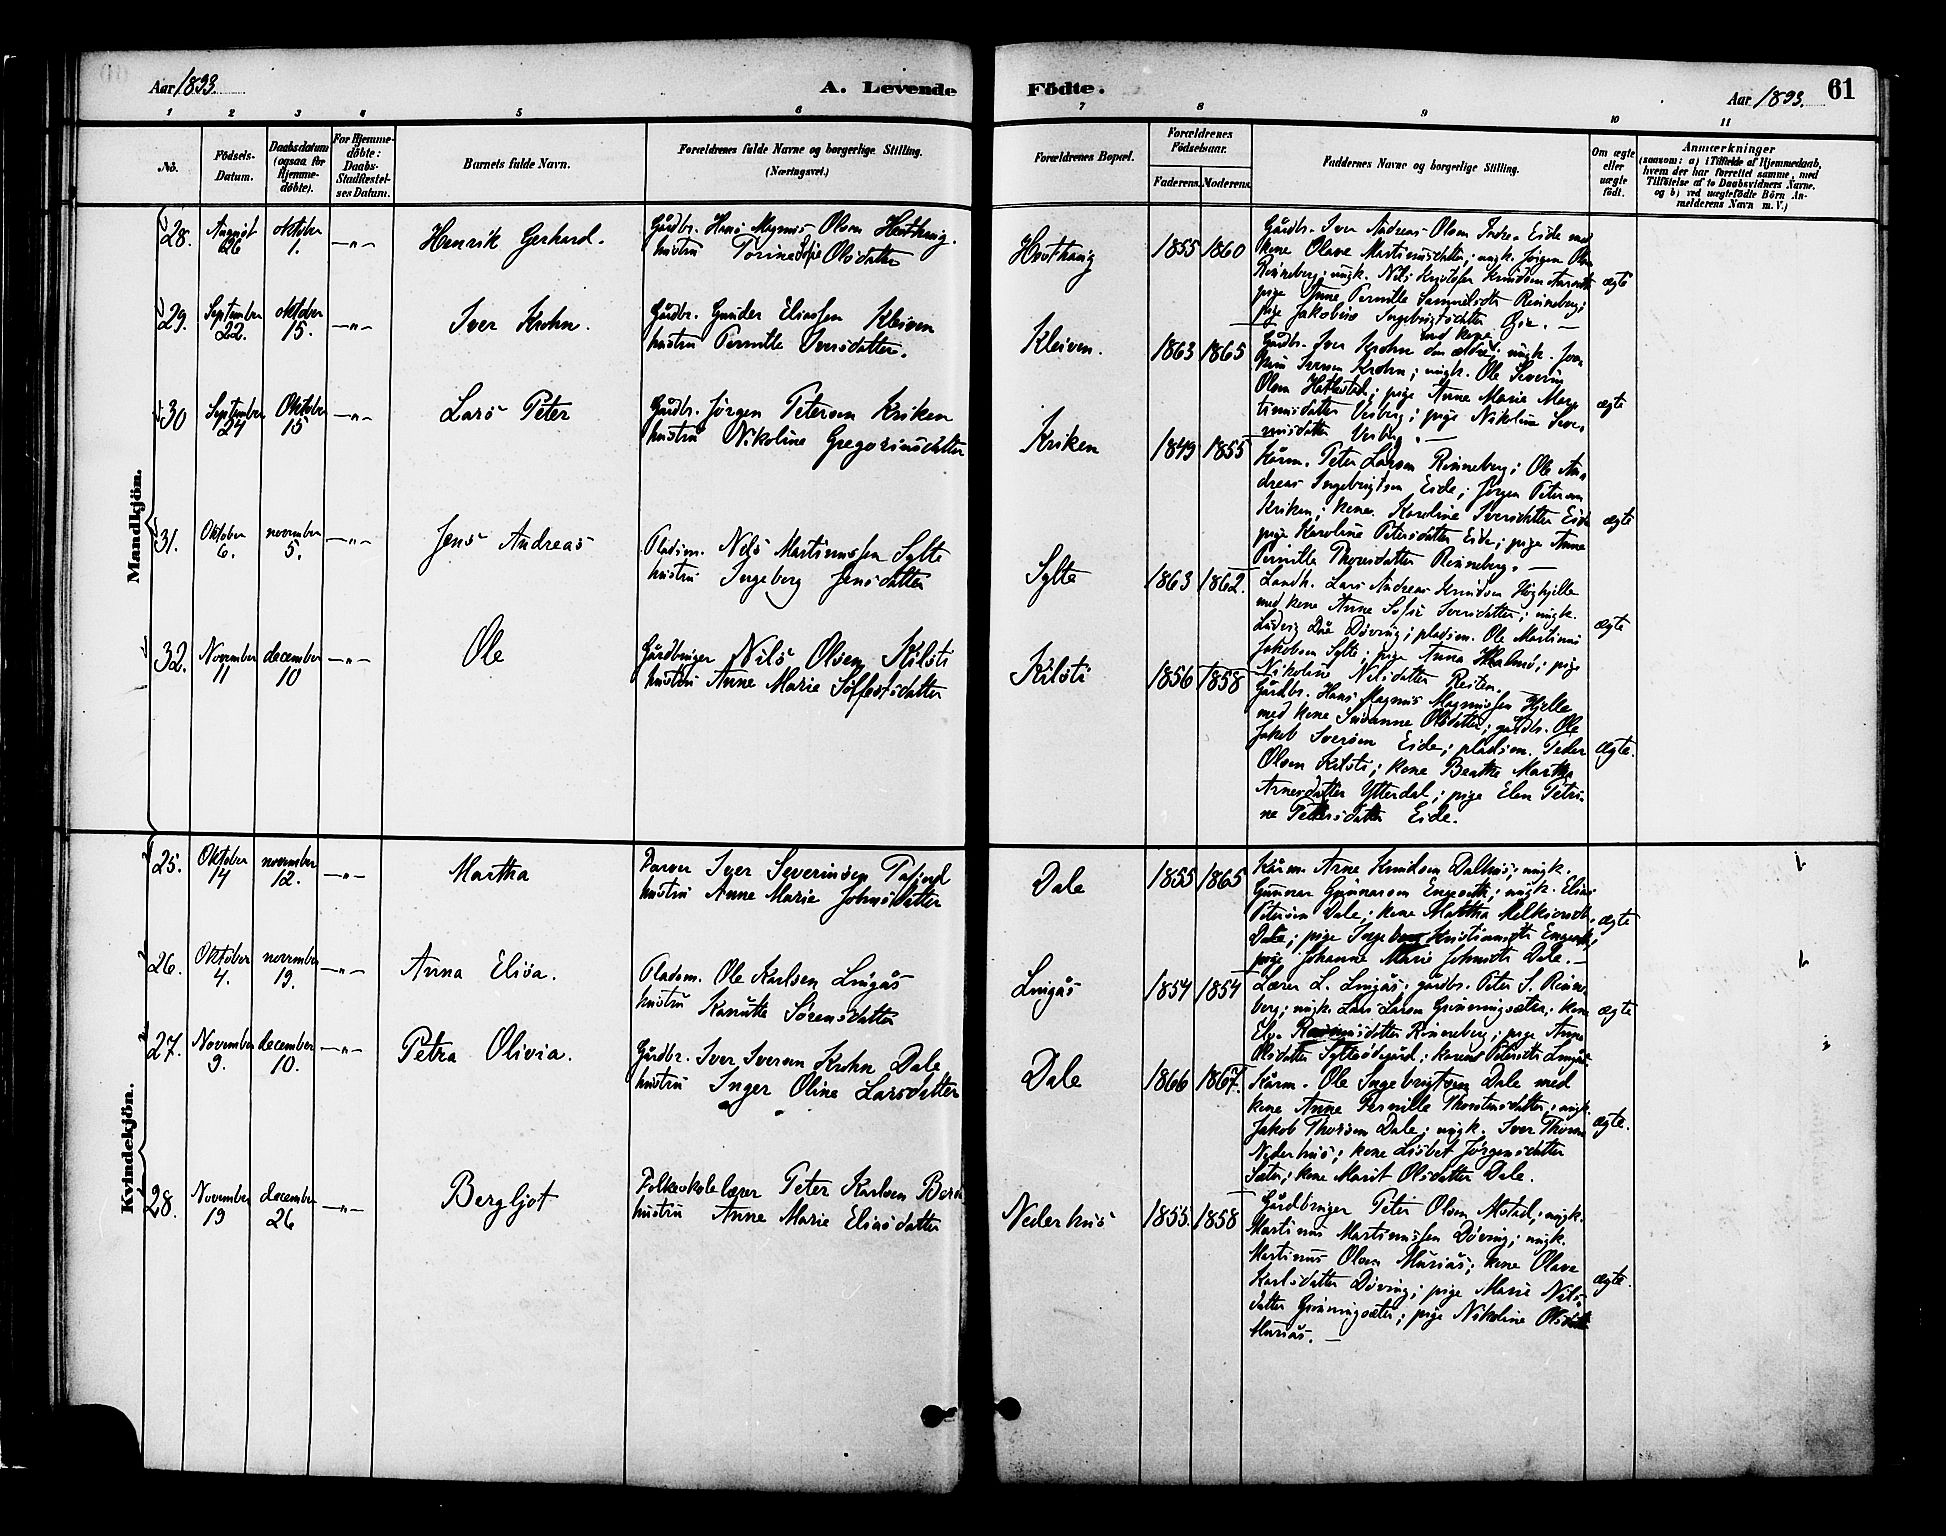 Aar 1893.
A. Levende
Födte.
Aar 1893.
61
1 2 3 4 5 6 7 8 9 10 11
No.
Födsels-Datum.
Daabsdatum (ogsaa for Hjemme-döbte).
For Hjemme-döbte: Daabs-Stadfæstel-ses Datum.
Barnets fulde Navn.
Forældrenes fulde Navne og borgerlige Stilling. (Næringsvei.)
Forældrenes Bopæl.
Forældrenes Födselsaar.
Faderens. Moderens.
Faddernes Navne og borgerlige Stilling.
Om ægte eller uægte födt.
Anmærkninger
(saasom: a) i Tilfælde af Hjemmedaab, hvem der har forrettet samme, med Tilföielse af to Daabsvidners Navne, og b) ved uægtefödte Börn An-melderens Navn m. V.)
Mandkjön.
28. August 26 oktober 1. —„— Henrik Gerhard.
Gårdbr. Hans Magnus Olsen
hustru Torine Sofie Olsdatter
1855 1860
Gårdbr. Iver Andreas Olsen Indre Eide med
kone Olave Martinusdatter; ungk. Jörgen Olsen
Rönneberg; ungk. Nils Kristofer Knudsen
pige Anne Pernille Samuelsdtr Rönneberg;
pige Jakobine Ingebrigtsdatter
ægte
29. September 22. oktober 15. —„— Iver Krohn.
Gårdbr. Gunder Eliassen Kleiven
hustru Pernille Iversdatter.
Kleiven. 1863 1865
Gårdbr. Iver Krohn den ældre med kone; ungk.
Iversen Krohn; ungk. Ole Severin
Olsen Hattestad; pige Anne Marie Mar-
tinusdatter; pige Nikoline
ægte
30 September 24 Oktober 15 —„— Lars Peter
Gårdbr. Jörgen Petersen Kriken
hustru Nikoline Gregoriusdatter
Kriken 1849 1855
Kårm. Peter Larsen Rönneberg; Ole An-
dreas Ingebrigtsen Eide; Jörgen Petersen
Kriken; kone Karoline Iversdatter Eide
pige Karoline Petersdatter Eide; pige Anne
Pernille Thorsdatter Rönneberg. —
ægte
31. Oktober 6. november 5. —„— Jens Andreas
Pladsm. Nils Martinussen Sylte
hustru Ingeborg Jensdatter
Sylte 1863 1862.
Landh. Lars Andreas Knudsen
med kone Anne Sofie Iversdatter; ungk.
Ludvig Döving; pladsm. Ole Martinus
Jakobsen Sylte; pige Anna; pige
Nikoline Nilsdatter Reiten.
ægte
32. November 11 december 10 —„— Ole
Gårdbruger Nils Olsen Kilsti
hustru Anne Marie
Kilsti 1856 1858
Gårdbr. Hans Magnus Magnussen Hjelle
med kone Susanne Olsdatter; gårdbr. Ole
Jakob Iversen Eide; pladsm. Peder
Olsen Kilsti; kone Beathe Martha
Arnesdatter Ytterdal; pige Elen Petri-
ne Pettersdatter Eide.
ægte.
Kvindekjön.
25. Oktober 14 november 12. —„— Martha
Farver Iver Severinsen Tafjord
hustru Anne Marie Johnsdatter
Dale 1855 1865
Kårm. Arne Knudsen Dalhus; ungk.
Gunnar Gunnarsen Engeseth; ungk. Elias
Petersen Dale; kone Martha Melkiorsdtr.
Dale; pige Ingeborg Kristiansdtr
pige Johanne Marie Johnsdtr Dale. —
ægte
26. Oktober 4. november 19. —„— Anna Elisa.
Pladsm. Ole Karlsen Lingås
hustru Sörensdatter
Lingås 1854 1854
Lærer L. Lingås; gårdbr. Peter S. Rönne-
berg; ungk. Lars Larsen Grönningsæter; kone
Rasmusdatter Rönneberg; pige Anne
Olsdatter Sylteödegård; Petersdtr Lingås
ægte
27. November 9. december 10. —„— Petra Olivia.
Gårdbr. Iver Iversen Krohn Dale
hustru Inger Oline Larsdatter
Dale 1866 1867.
Kårm. Ole Ingebrigtsen Dale med
kone Anne Pernille Thorsteinsdatter; ungk.
Jakob Thorsen Dale; ungk. Iver Thorsen
Nederhus; kone Lisbet Jörgensdatter
Sæter; kone Marit Olsdatter Dale.
ægte.
28. November 19 december 26 —„— Bergljot
Folkeskolelærer Peter Karlsen Berg
hustru Anne Marie Eliasdatter
Nederhus 1855. 1858
Gårdbruger Peter Olsen; ungk.
Martinus Martinussen Döving; ungk.
Martinus Olsen Muriås; kone Olave
Karlsdatter Döving; pige Marie Nils-
datter Grönningsæter; pige Nikoline Olsdatter
Muriås. —
ægte.